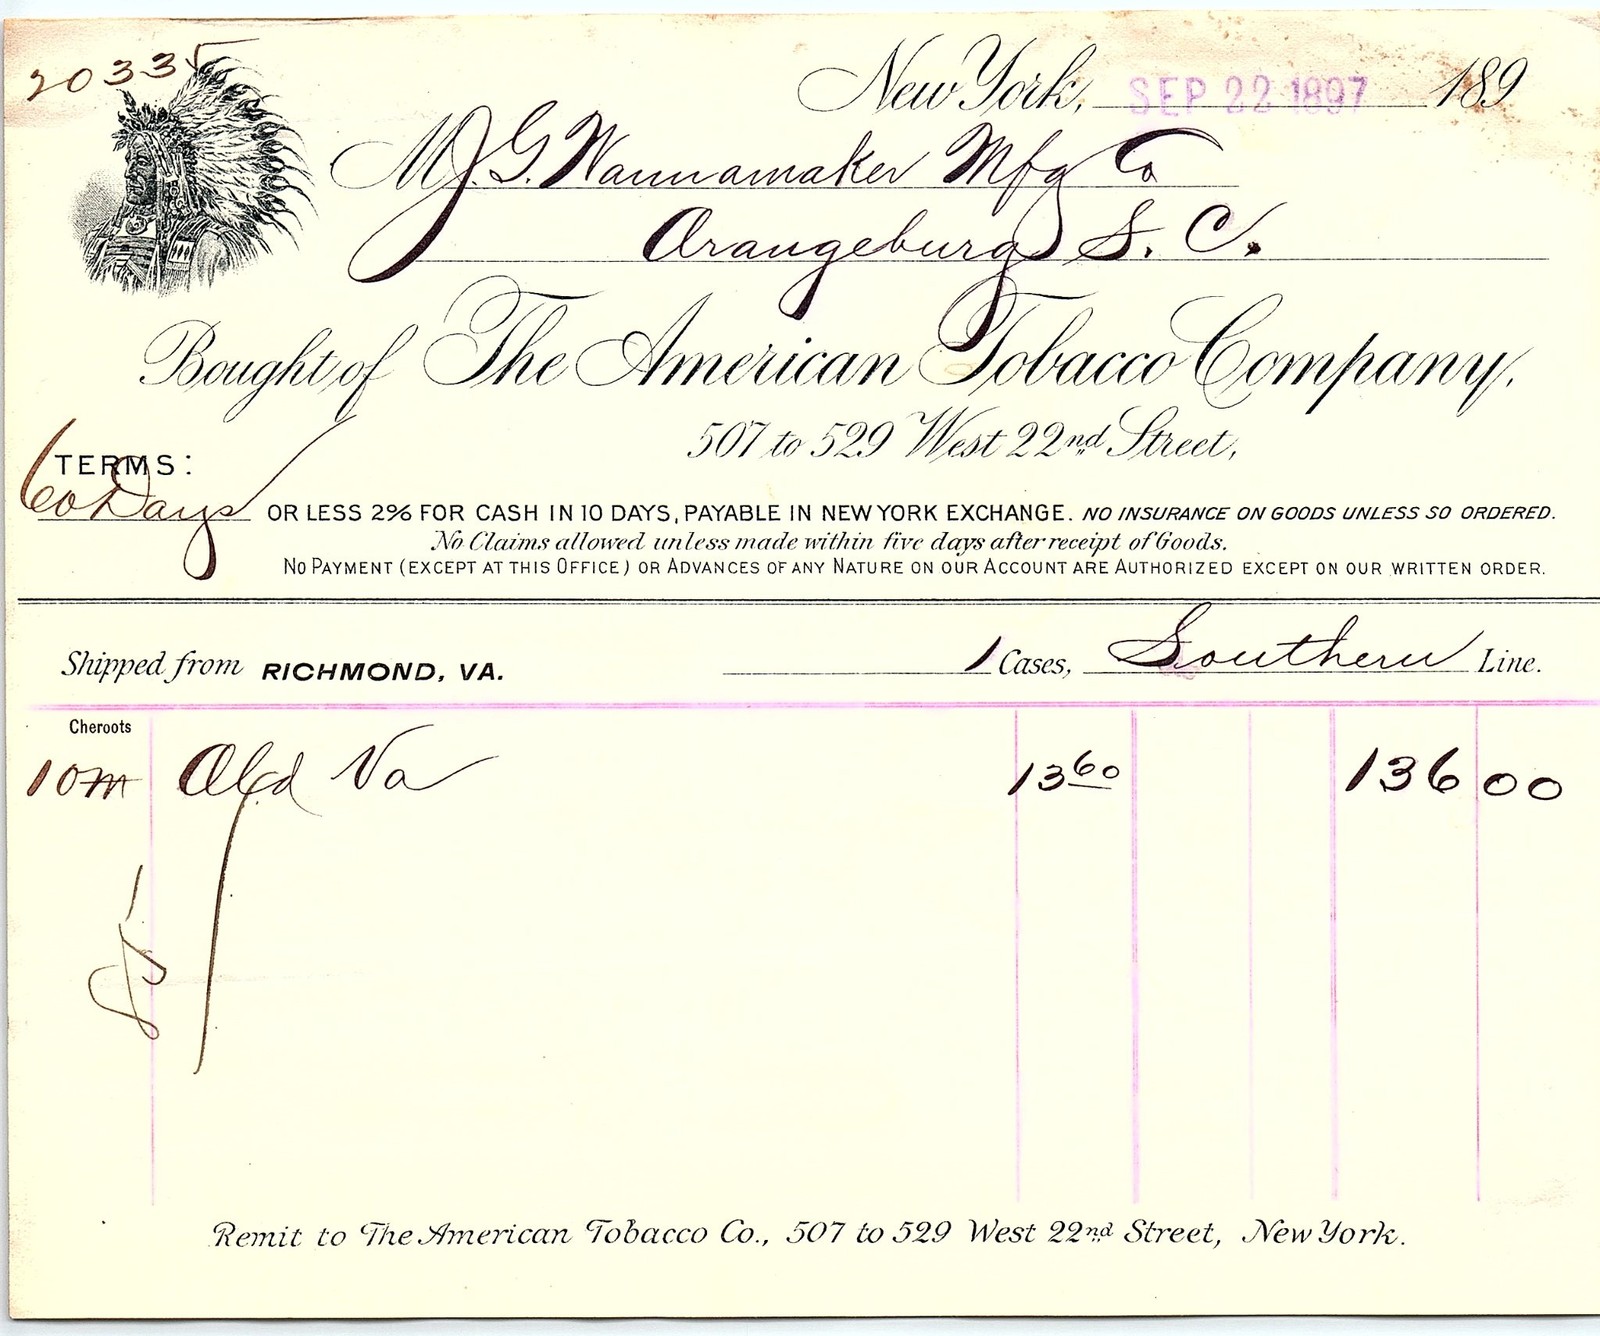 20335
New York, SEP 22 1897 189
M J. G. Wannamaker Mfg Co
Orangeburg S. C.
Bought of The American Tobacco Company.
507 to 529 West 22nd Street,
TERMS:
60 Days OR LESS 2% FOR CASH IN 10 DAYS, PAYABLE IN NEW YORK EXCHANGE. NO INSURANCE ON GOODS UNLESS SO ORDERED.
No Claims allowed unless made within five days after receipt of Goods.
NO PAYMENT (EXCEPT AT THIS OFFICE) OR ADVANCES OF ANY NATURE ON OUR ACCOUNT ARE AUTHORIZED EXCEPT ON OUR WRITTEN ORDER.
Shipped from RICHMOND, VA. 1 Cases, Southern Line.
Cheroots
10m Old Va 13 60 136 00
Remit to The American Tobacco Co., 507 to 529 West 22nd Street, New York.